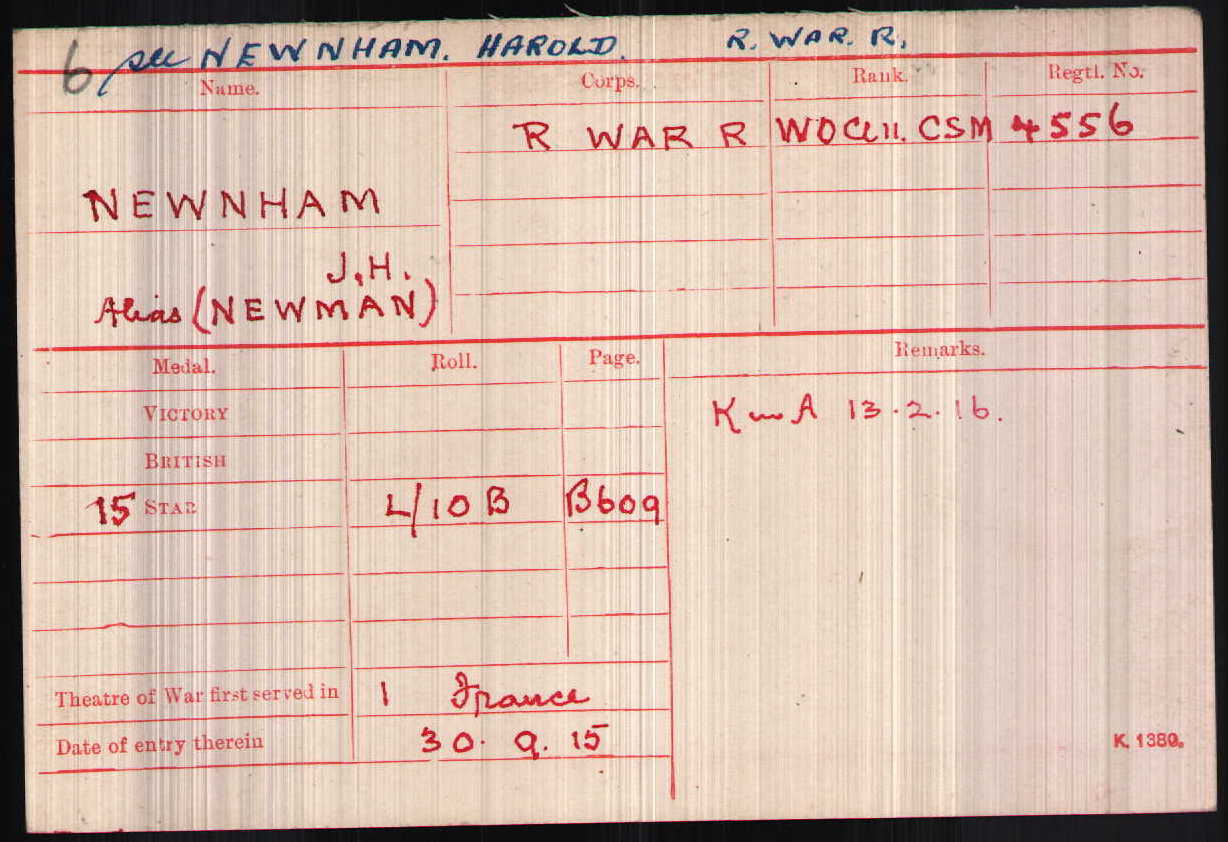 6 see NEWNHAM. HAROLD. R. WAR. R.
Name. Corps. Rank. Regtl. No.
R WAR R WOCl II. CSM 4556
NEWNHAM
J.H.
Alias (NEWMAN)
Medal. Roll. Page. Remarks.
VICTORY
K in A 13.2.16.
BRITISH
15 STAR L/10 B B609
Theatre of War first served in 1 France
Date of entry therein 30. 9. 15
K. 1380.